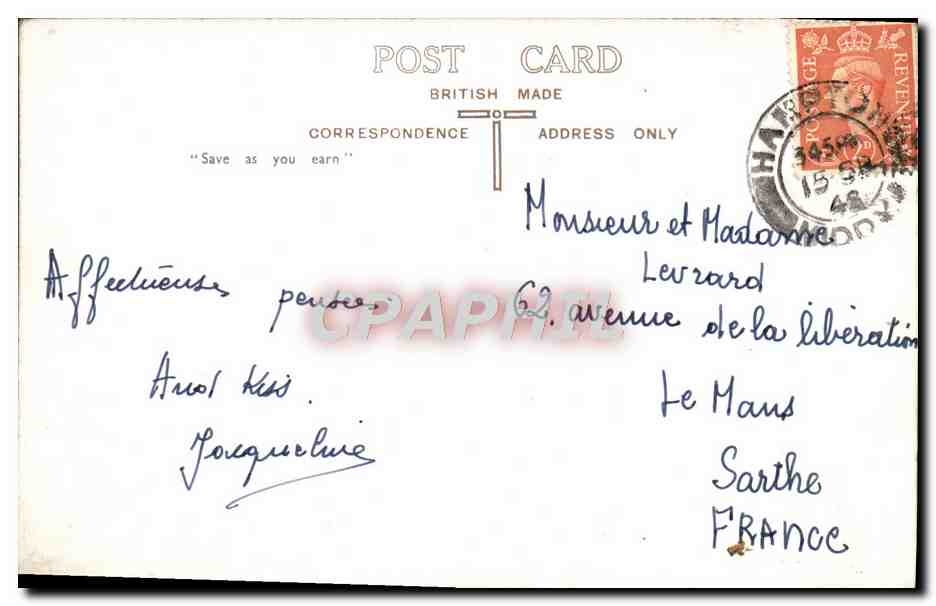 POST CARD
BRITISH MADE
CORRESPONDENCE ADDRESS ONLY
"Save as you earn"
POSTAGE REVENUE
HAMPTON
345PM
15 SP
48
MIDDX
Monsieur et Madame
Levrard
62, avenue de la libération
Le Mans
Sarthe
FRANCE
Affectueuses pensées
And Kiss.
Jacqueline
CPAPHIL